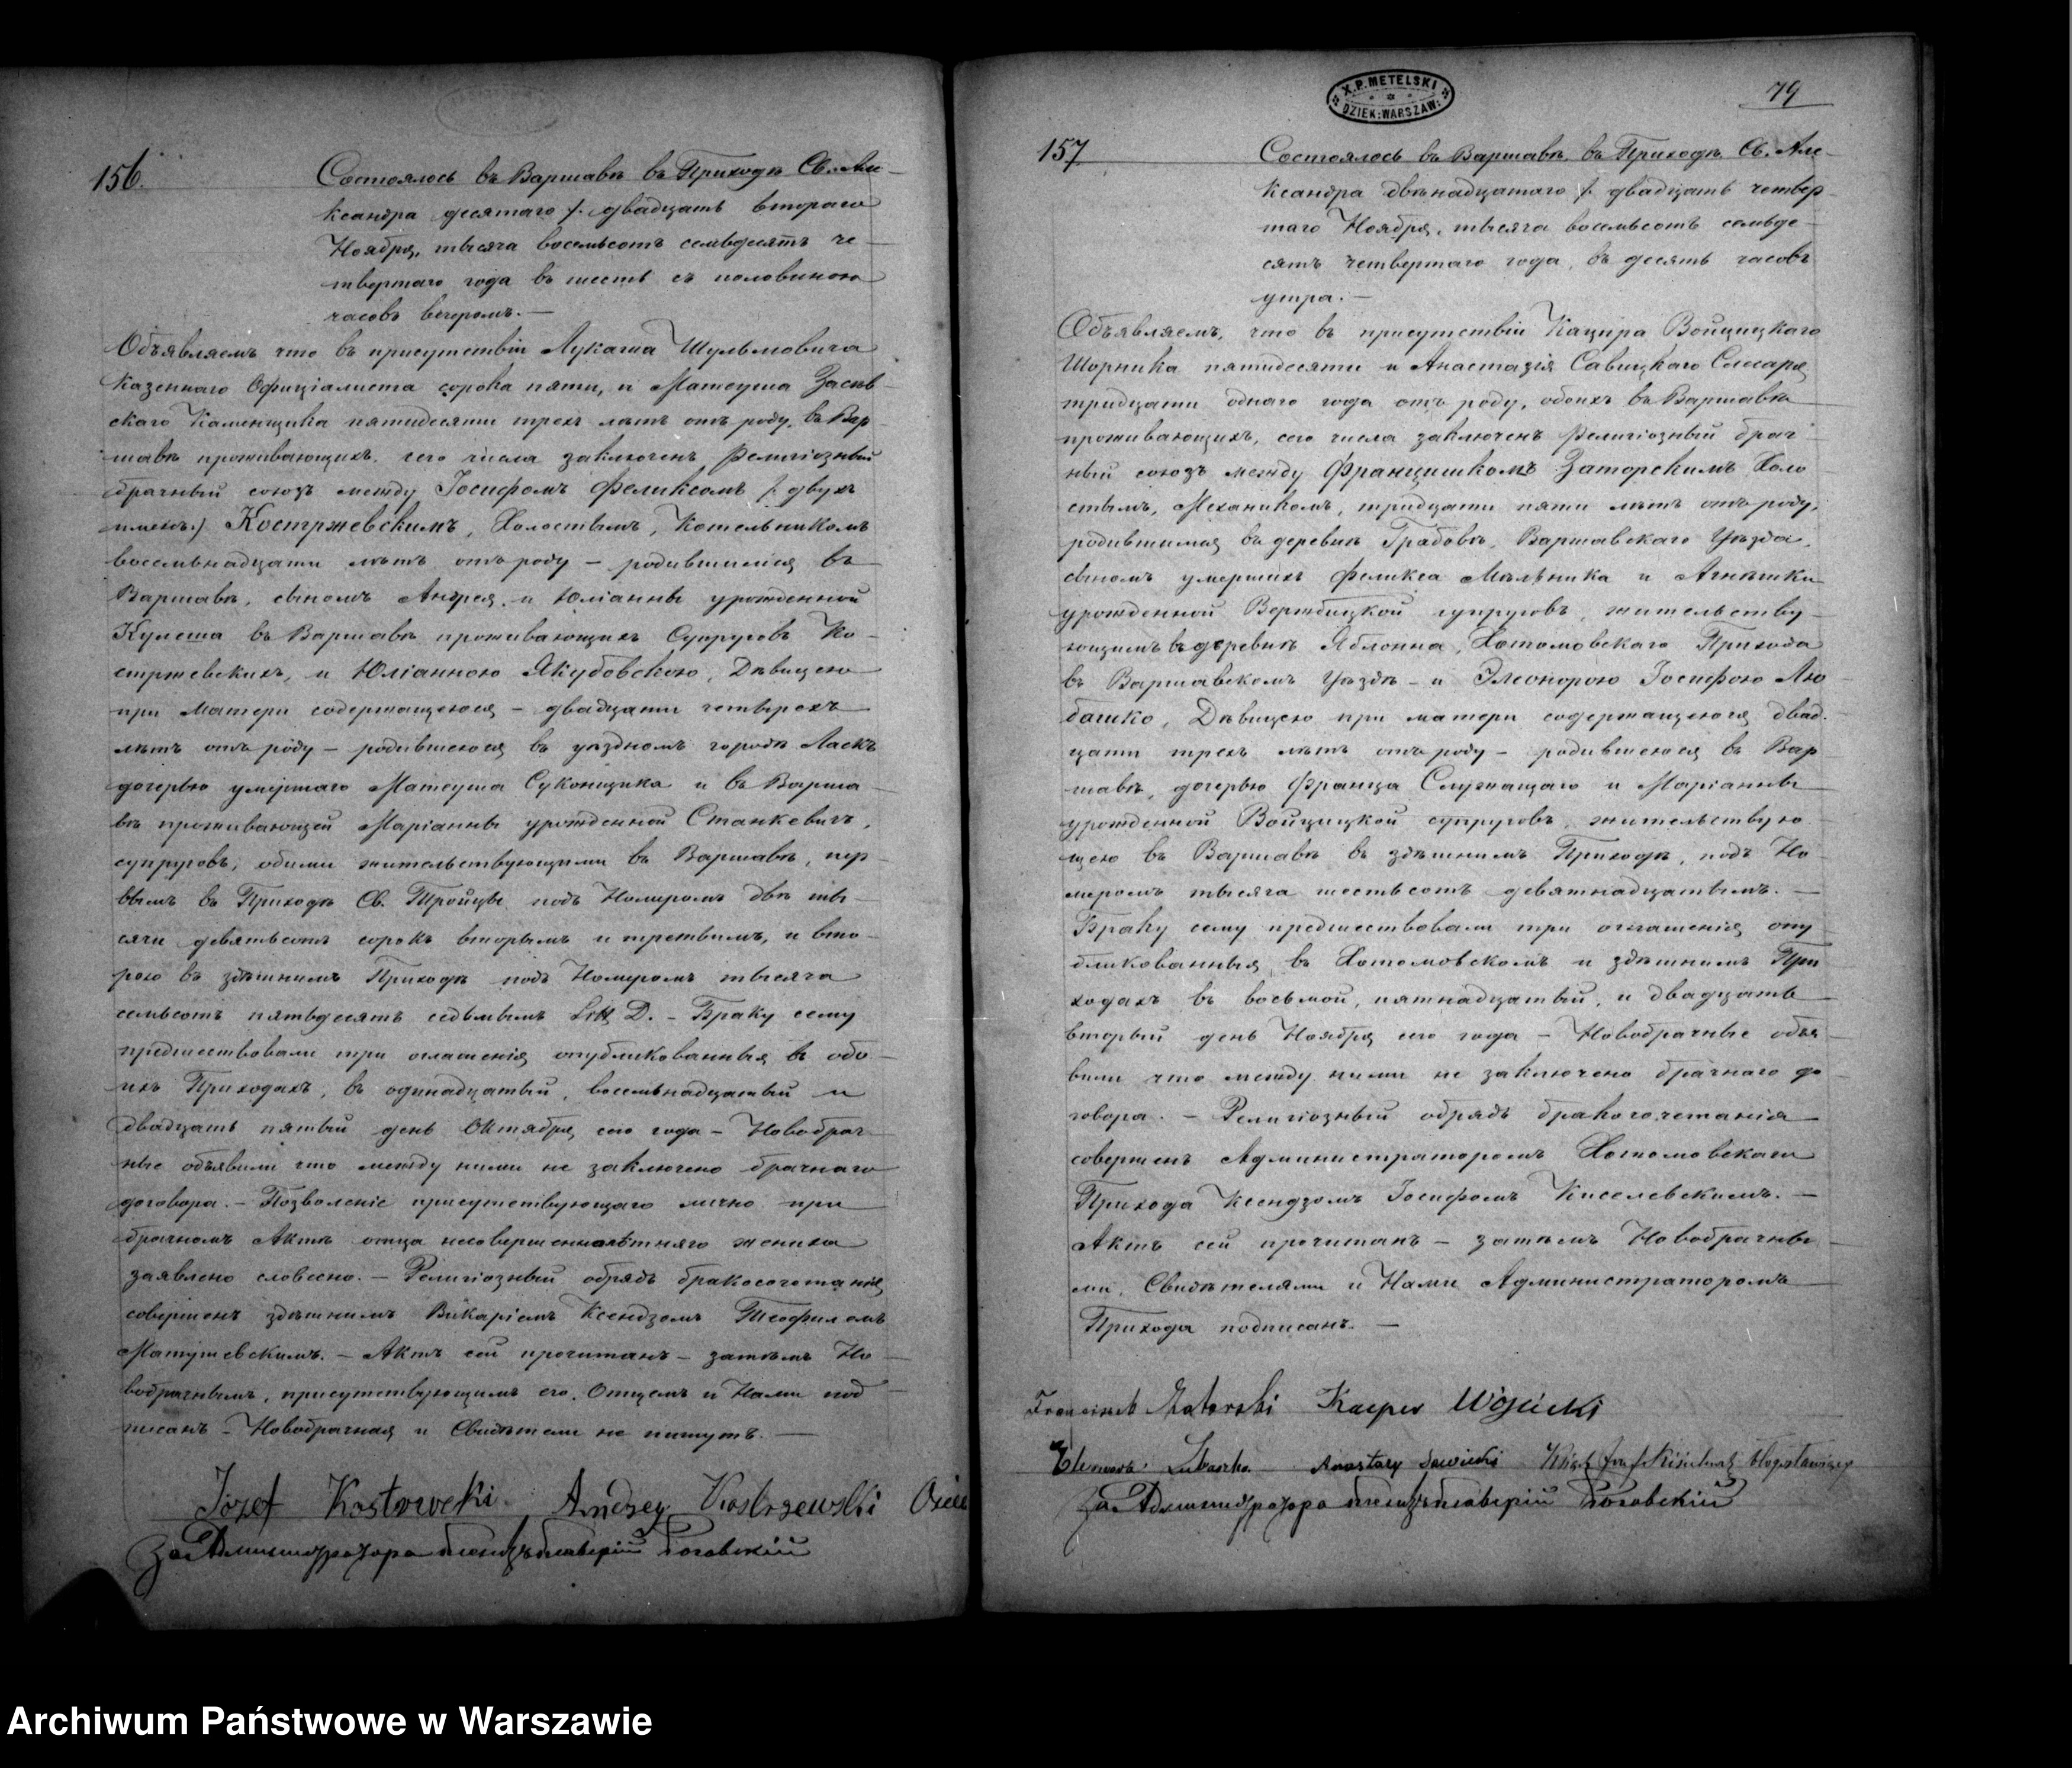 156.
Состоялось въ Варшавѣ въ Приходѣ Св. Але-
ксандра десятаго /. двадцать втораго
Ноября, тысяча восемьсотъ семьдесятъ че-
твертаго года въ шесть съ половиною
часовъ вечеромъ. —
Объявляемъ что въ присутствіи Лукаша Шульмовича
Казеннаго Офиціалиста сорока пяти, и Матеуша
скаго Каменщика пятидесяти трехъ лѣтъ отъ роду, въ Вар-
шавѣ проживающихъ, сего числа заключенъ Религіозный
брачный союзъ между Іосифомъ Феликсомъ /. двухъ
именъ./ Костржевскимъ, Холостымъ, Котельникомъ
восемьнадцати лѣтъ отъ роду — родившимся въ
Варшавѣ, сыномъ Андрея и Юліанны урожденной
Кулеша въ Варшавѣ проживающихъ Супруговъ Ко-
стржевскихъ, и Юліанною Якубовскою, Дѣвицею
при Матери содержащеюся — двадцати четырехъ
лѣтъ отъ роду — родившеюся въ уѣздномъ городѣ Ласкъ
дочерью умершаго Матеуша Суконщика и въ Варша-
вѣ проживающей Маріанны урожденной Станкевичъ,
супруговъ, обоими жительствующими въ Варшавѣ, пер-
вымъ въ Приходѣ Св. Тройцы подъ Номеромъ двѣ ты-
сячи девятьсотъ сорокъ вторымъ и третьимъ, и вто-
рою въ здѣшнимъ Приходѣ подъ Номеромъ тысяча
семьсотъ пятьдесятъ седьмымъ Litt. D. — Браку сему
предшествовали три оглашенія опубликованныя въ обо-
ихъ Приходахъ, въ одинадцатый, восемьнадцатый и
двадцать пятый день Октября сего года — Новобрач-
ные объявили что между ними не заключено брачнаго
договора. — Позволеніе присутствующаго лично при
брачномъ Актѣ отца несовершеннолѣтняго жениха
заявлено словесно. — Религіозный обрядъ бракосочетанія
совершенъ здѣшнимъ Викаріемъ Ксендзомъ Теофиломъ
Матушевскимъ. — Актъ сей прочитанъ — затѣмъ Но-
вобрачнымъ, присутствующимъ его Отцемъ и Нами под-
писанъ — Новобрачная и Свидѣтели не пишутъ. —
Józef Andrzej Kostrzewski
За Администратора
X.P. METELSKI DZIEK: WARSZAW:
79
157
Состоялось въ Варшавѣ въ Приходѣ Св. Але-
ксандра двѣнадцатаго /. двадцать четвер-
таго Ноября, тысяча восемьсотъ семьде-
сятъ четвертаго года, въ десять часовъ
утра. —
Объявляемъ, что въ присутствіи Кацпра Войцицкаго
Шорника пятидесяти и Анастазія Савицкаго Слесаря
тридцати однаго года отъ роду, обоихъ въ Варшавѣ
проживающихъ, сего числа заключенъ Религіозный брач-
ный союзъ между Францишкомъ Заторскимъ Холо-
стымъ, Механикомъ, тридцати пяти лѣтъ отъ роду,
родившимся въ деревнѣ Грабовѣ, Варшавскаго Уѣзда,
сыномъ умершихъ Феликса Мѣльника и Агнѣшки
урожденной Вержбицкой супруговъ, жительству-
ющимъ въ деревнѣ Яблонна, Хотомовскаго Прихода
въ Варшавскомъ Уѣздѣ — и Элеонорою Іосифою Лю-
башко, Дѣвицею при матери содержащеюся двад-
цати трехъ лѣтъ отъ роду — родившеюся въ Вар-
шавѣ, дочерью Франца Служащаго и Маріанны
урожденной Войцицкой супруговъ, жительствую-
щею въ Варшавѣ въ здѣшнимъ Приходѣ, подъ Но-
меромъ тысяча шестьсотъ девятнадцатымъ. —
Браку сему предшествовали три оглашенія опу-
бликованныя въ Хотомовскомъ и здѣшнимъ При-
ходахъ въ восьмой, пятнадцатый, и двадцать
вторый день Ноября сего года — Новобрачные объя-
вили что между ними не заключено брачнаго до-
говора. — Религіозный обрядъ бракосочетанія
совершенъ Администраторомъ Хотомовскаго
Прихода Ксендзомъ Іосифомъ Киселевскимъ. —
Актъ сей прочитанъ — затѣмъ Новобрачны-
ми, Свидѣтелями и Нами Администраторомъ
Прихода подписанъ. —
Franciszek Zatorski Kacper Wójcicki
Eleonora Lubaszko Anastazy Sawicki
За Администратора
Archiwum Państwowe w Warszawie